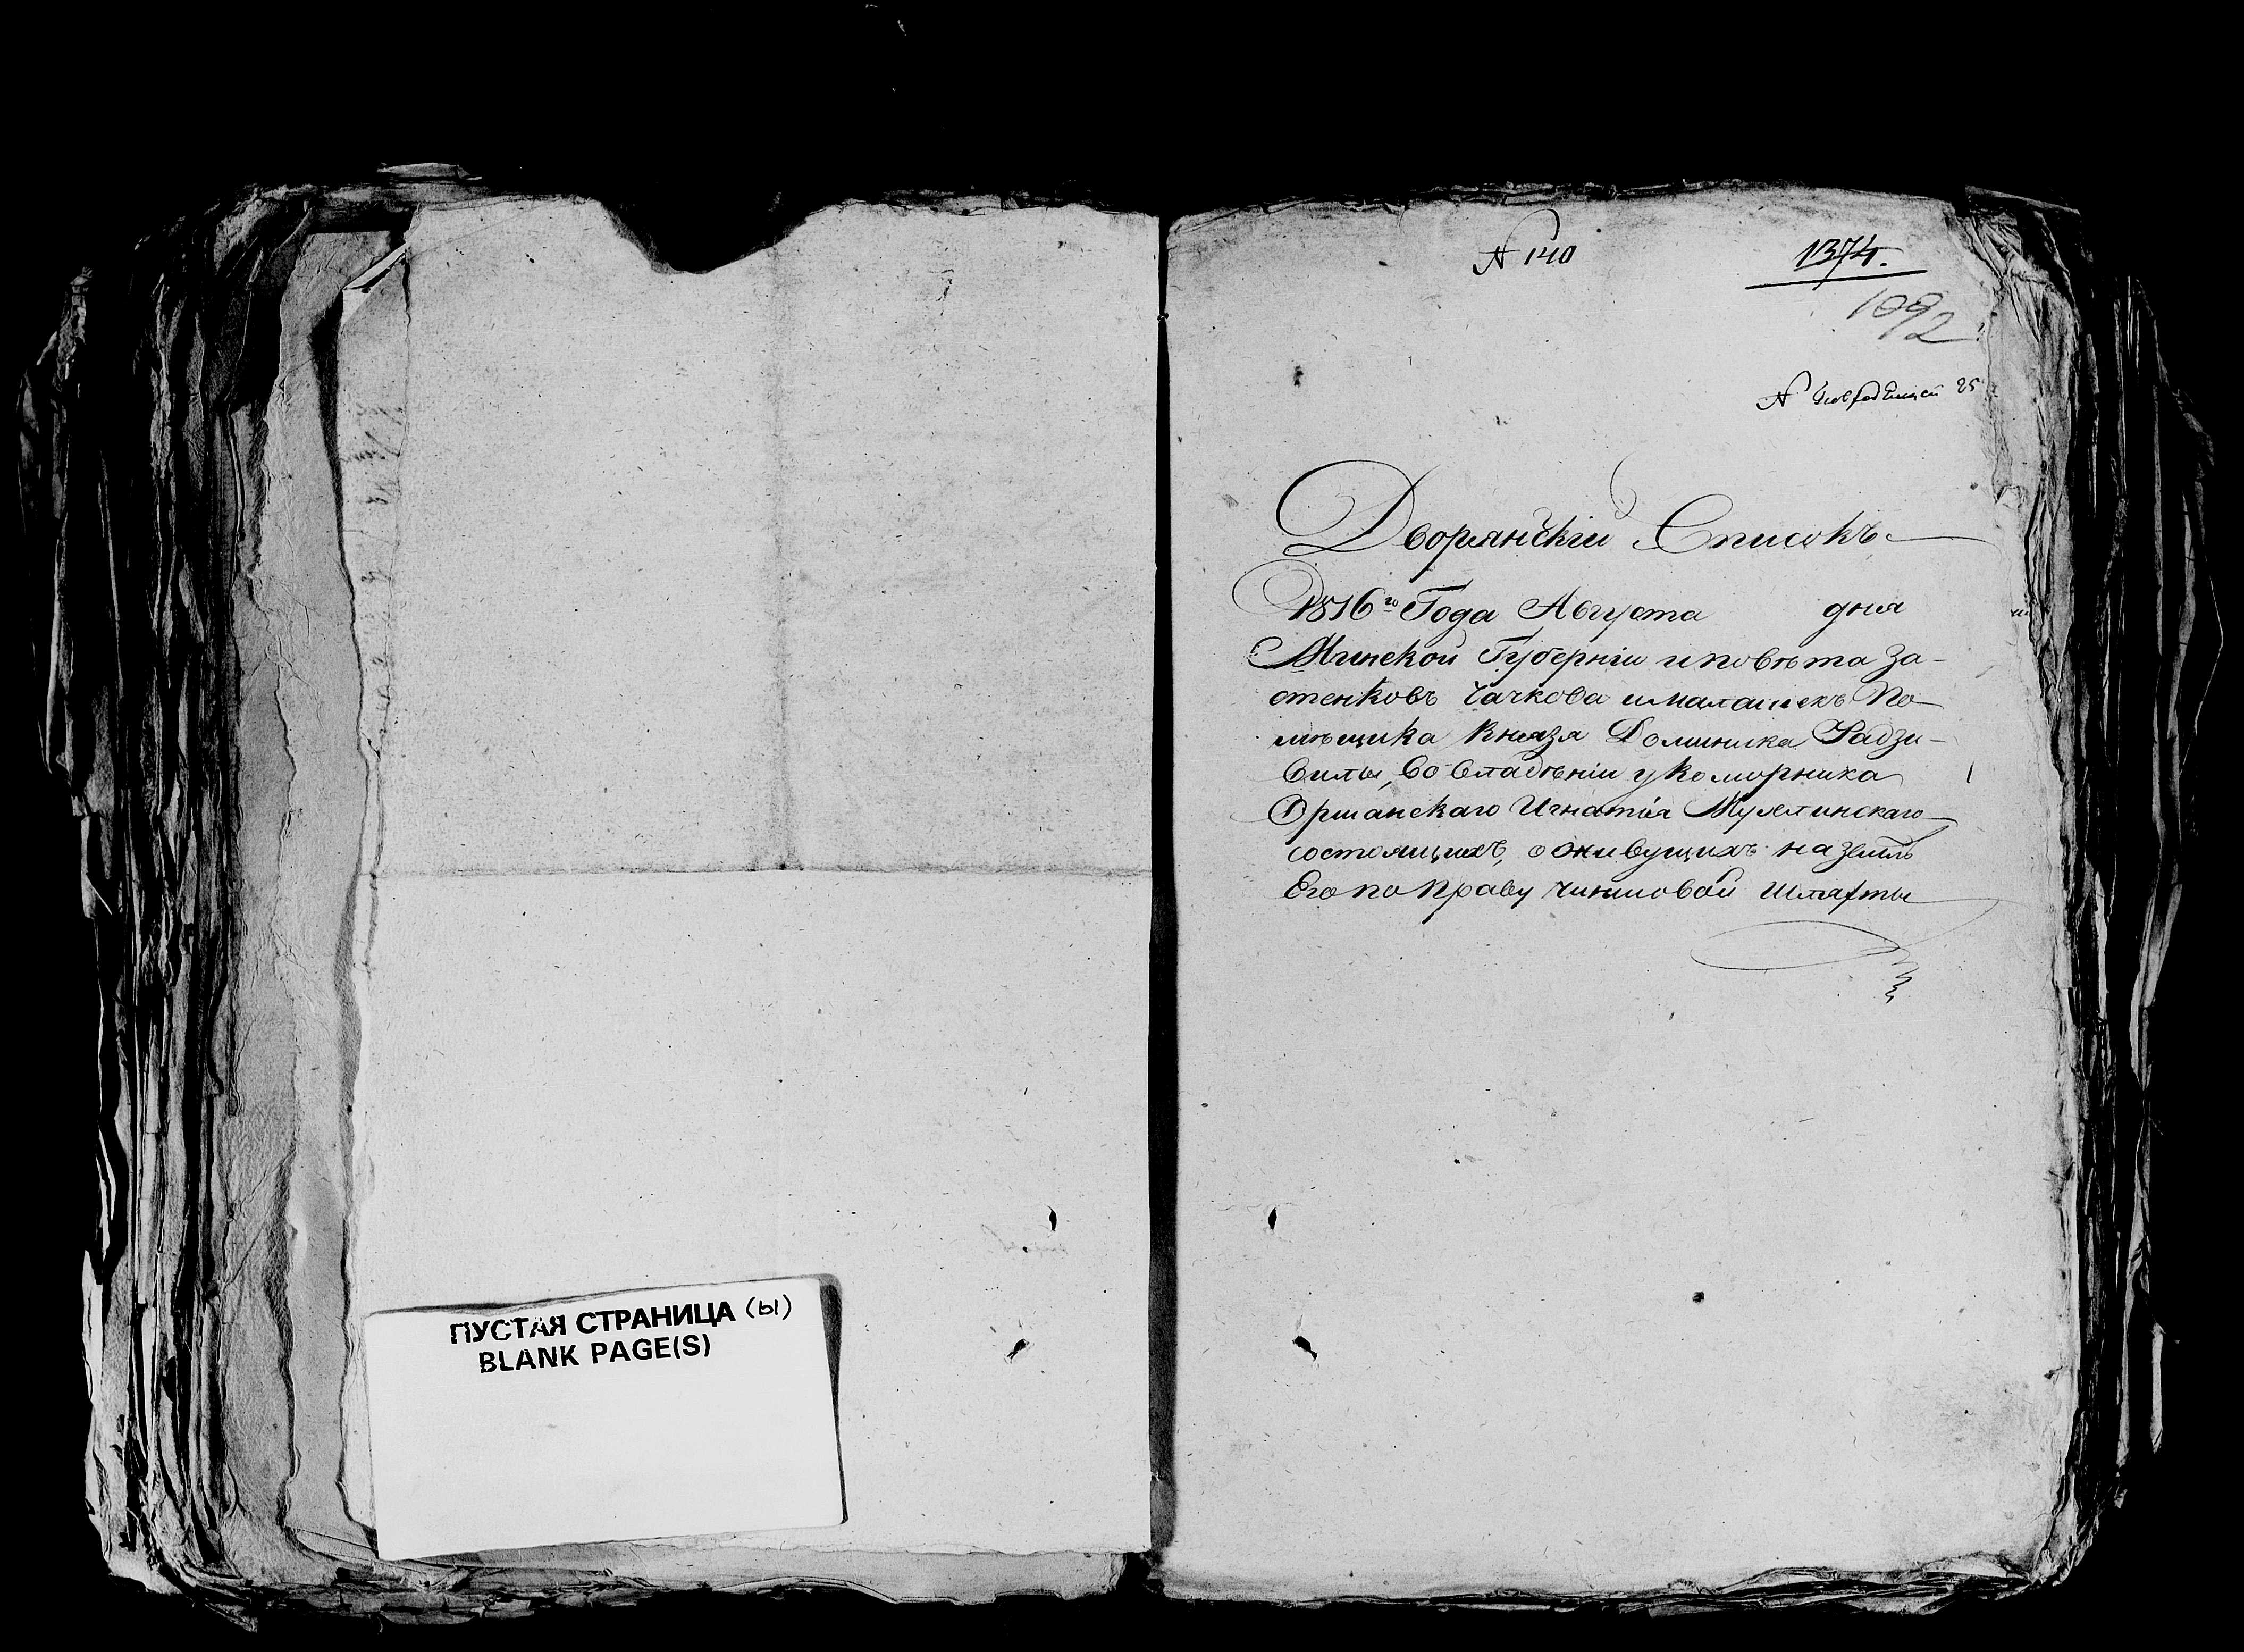 ПУСТАЯ СТРАНИЦА (ы)
BLANK PAGE(S)
№ 140
1374.
1092
№ 25
Дворянскій Списокъ
1816го Года Августа дня
Минской Губерніи и повѣта за-
стенковъ Чачкова и Малашекъ По-
мѣщика Князя Доминика Радзи-
вилы, во владѣніи у коморника
Оршанскаго Игнатія
состоящихъ, о живущихъ на землѣ
Его по праву чиншовой Шляхты